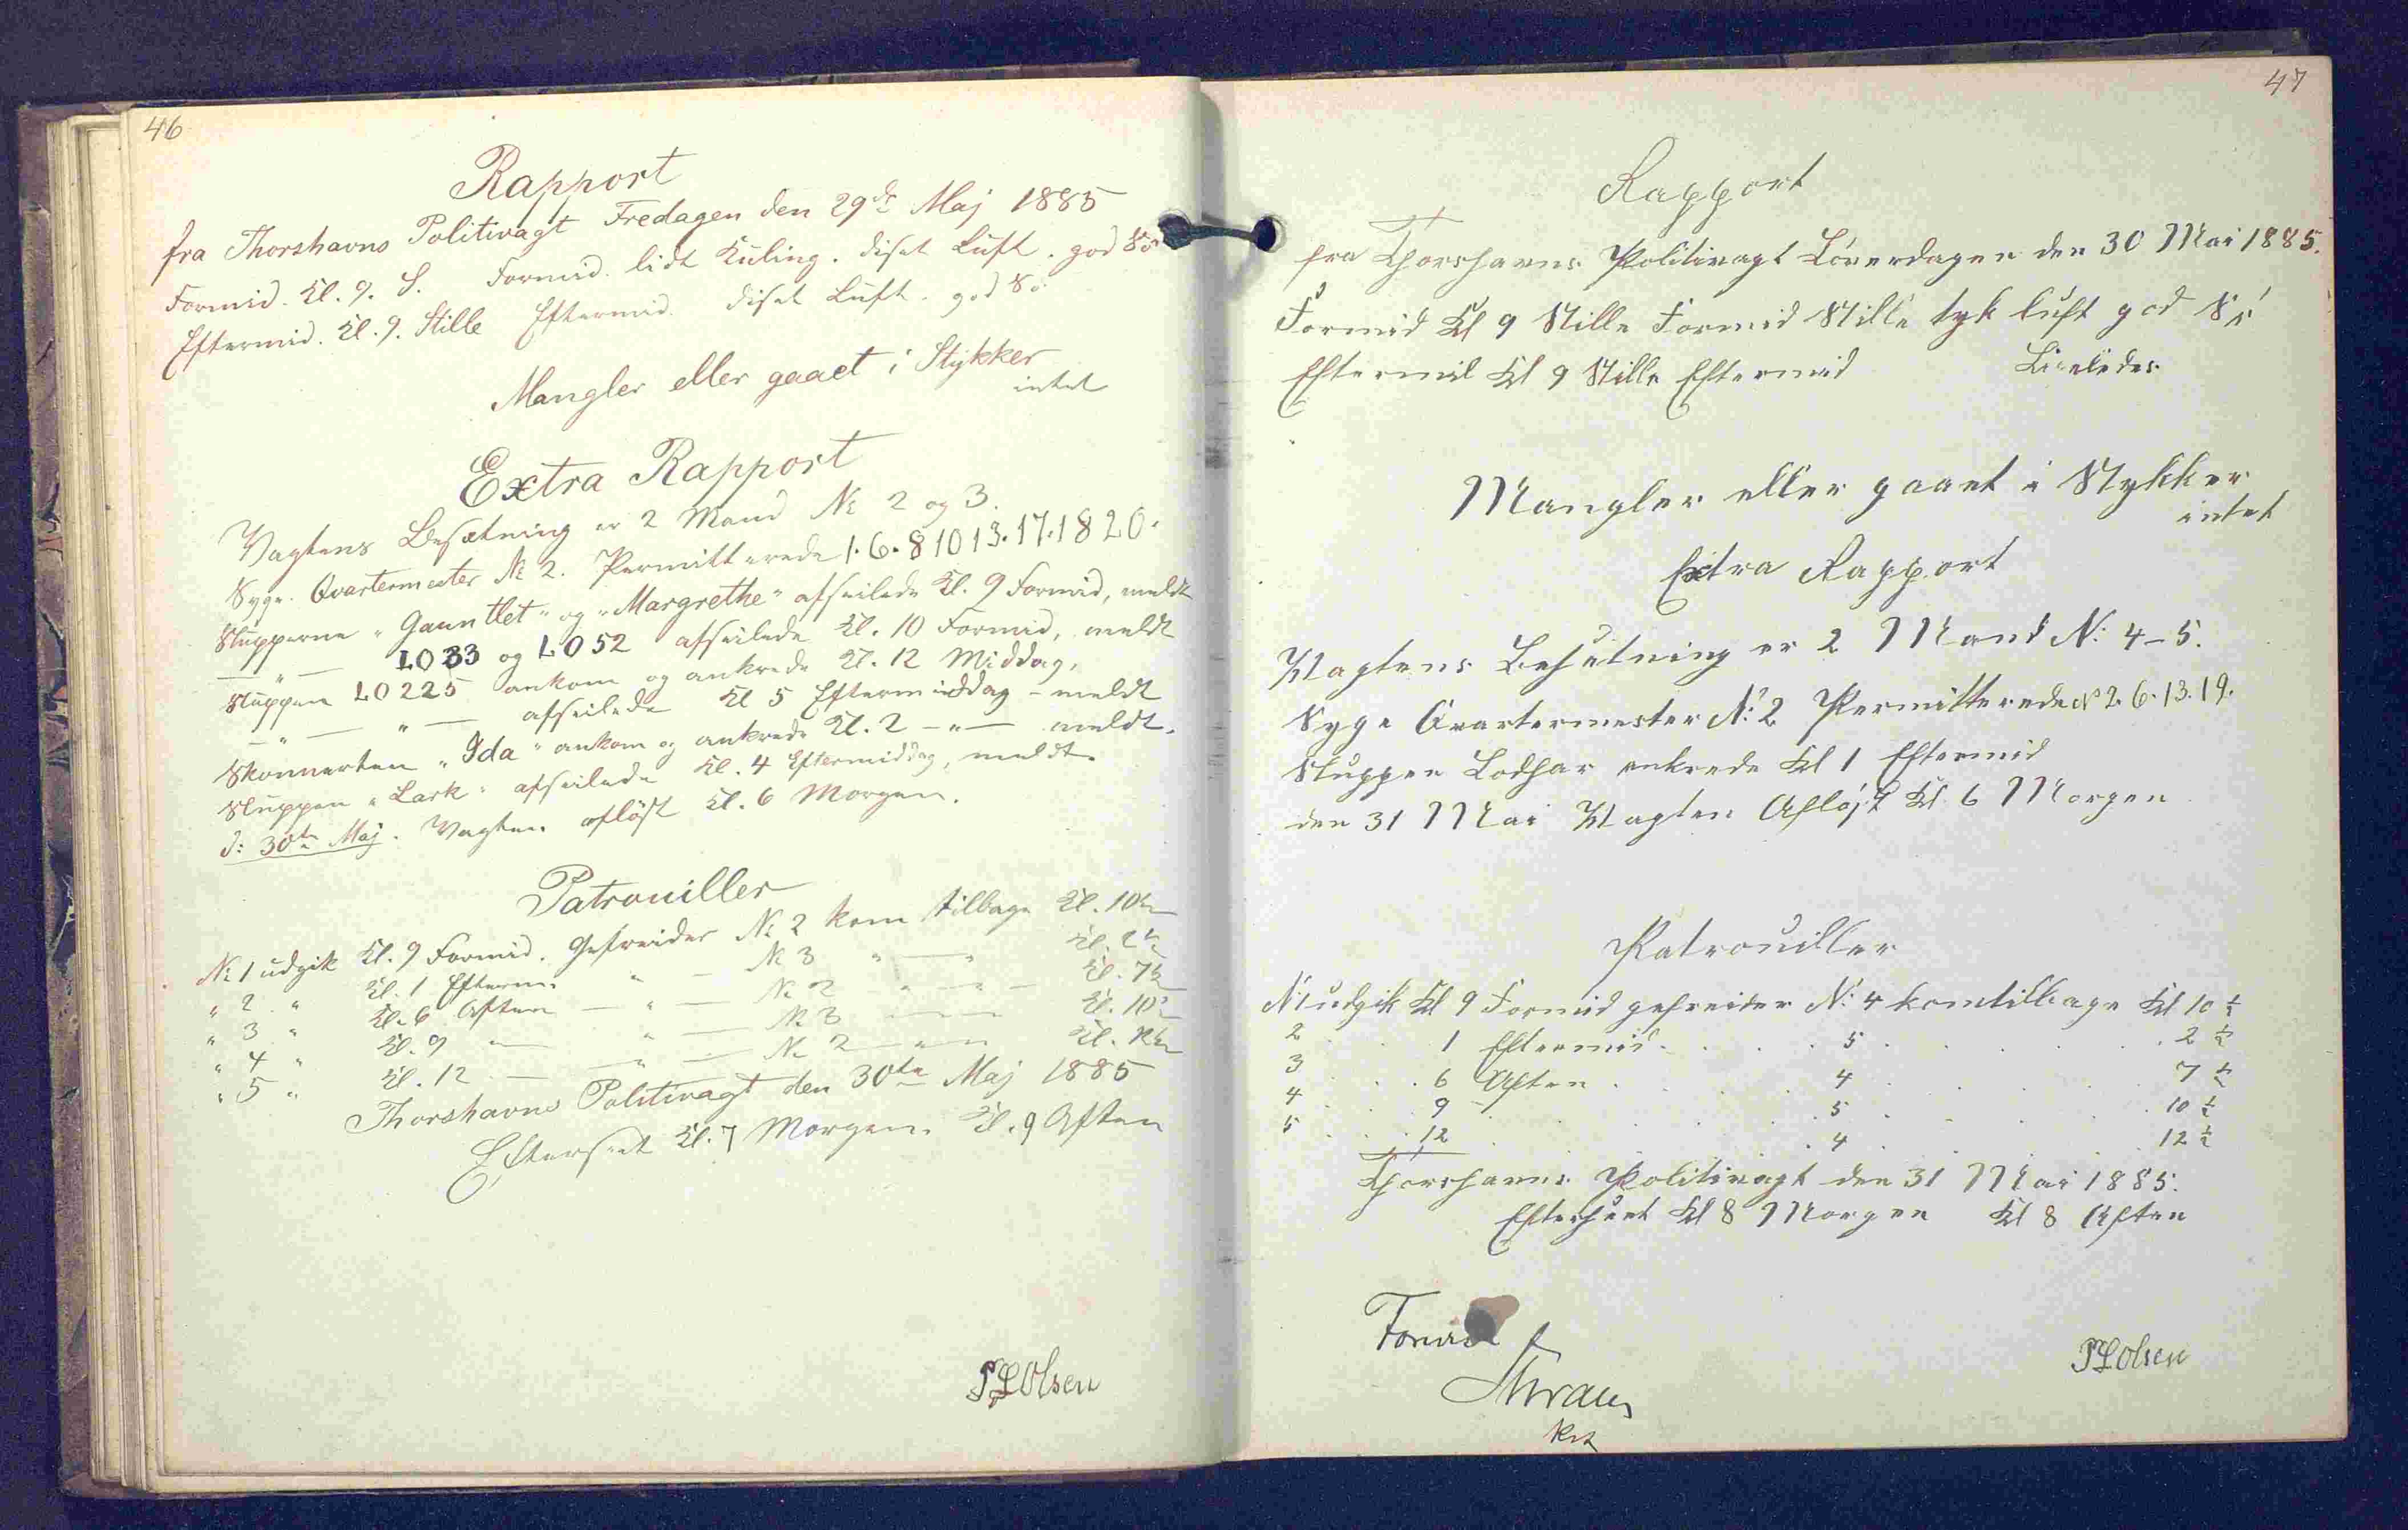 46
Rapport
fra Thorshavns Politivagt Fredagen den 29de Maj 1885
Formid. Kl. 9. S. Formid. lidt Kuling. diset Luft. god Sö
Eftermid. Kl. 9. Stille Eftermid. diset Luft. god Sö
Mangler eller gaaet i Stykker
intet
Extra Rapport
Vagtens Besætning er 2 Mand No 2 og 3.
Syge. Qvartermester No 2. Permitterede 1. 6. 8 10 13. 17. 18 20.
Slupperne "Gauntlet" og "Margrethe" afseilede Kl. 9 Formid, meldt
— " — LO 33 og LO 52 afseilede Kl. 10 Formid, meldt
Sluppen LO 225 ankom og ankrede Kl. 12 Middag,
— " — " — afseilede Kl 5 Eftermiddag - meldt
Skonnerten "Ida" ankom og ankrede Kl. 2 — " — meldt.
Sluppen "Lark" afseilede Kl. 4 Eftermiddag, meldt.
d: 30te Maj. Vagten aflöst Kl. 6 Morgen.
Patrouiller
No 1 udgik Kl. 9 Formid. Gefreider No 2 kom tilbage Kl. 10½
" 2 " Kl. 1 Efterm. " — No 3 " — " Kl. 2½
" 3 " Kl. 6 Aften — " — No 2 — " — " — Kl. 7½
" 4 " Kl. 9 " — " — No 3 — " — Kl. 10½
" 5 " Kl. 12 — — " — No 2 — " — Kl. 12½
Thorshavns Politivagt den 30te Maj 1885
Efterseet Kl. 7 Morgen. Kl. 9 Aften
Olsen
47
Rapport
fra Thorshavns Politivagt Löverdagen den 30 Mai 1885.
Formid Kl 9 Stille Formid Stille tyk luft god Sö
Eftermid Kl 9 Stille Eftermid Ligeledes
Mangler eller gaaet i Stykker
intet
Extra Rapport
Vagtens Besetning er 2 Mand No: 4-5.
Syge Qvartermester No: 2 Permitterede No 2. 6. 13. 19.
Sluppen Lodhar ankrede Kl 1 Eftermid
den 31 Mai Vagten Aflöst Kl 6 Morgen
Patrouiller
No: 1 udgik Kl 9 Formid gefreider No: 4 kom tilbage Kl 10 ½
2 . . 1 Eftermid . . . 5 . . . . 2 ½
3 . . 6 Aften . . . 4 . . . . 7 ½
4 . . 9 - . . . 5 . . . . 10 ½
5 . . 12 . . . 4 . . . . 12 ½
Thorshavns Politivagt den 31 Mai 1885.
Efterseet Kl 8 Morgen Kl 8 Aften
Olsen